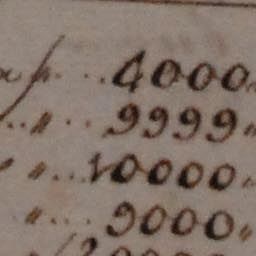 p. ... 4000 "
" ... 9999 "
" ... 10000 "
" ... 9000 "